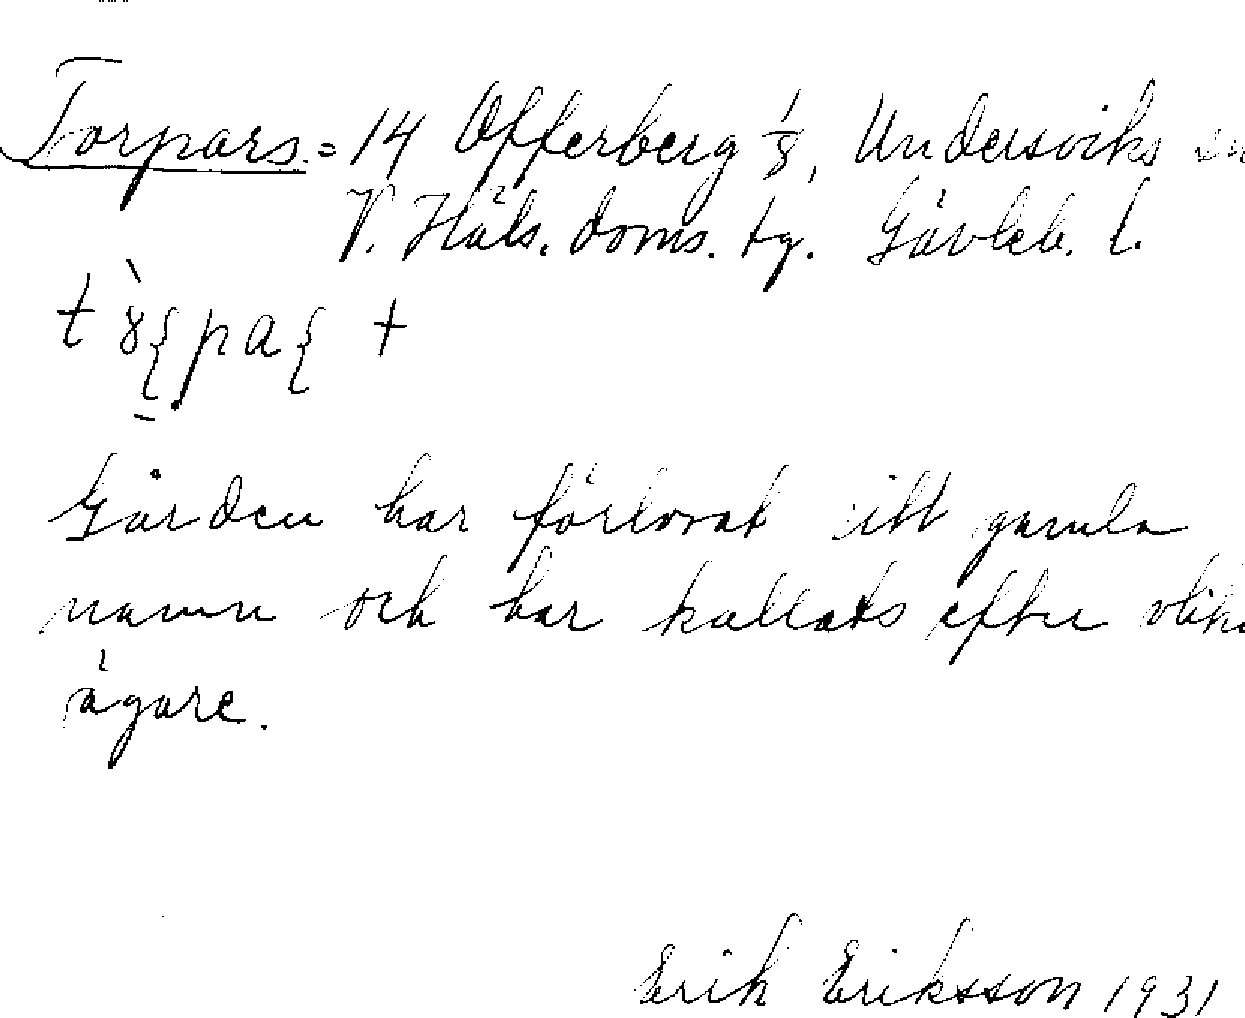 Torpars = 14 Offerberg 1/8, Underviks sn
V. Häls. doms. tg. Gävleb. l.
Gården har förlorat sitt gamla
namn och har kallats efter olika
ägare.
Erik Eriksson 1931